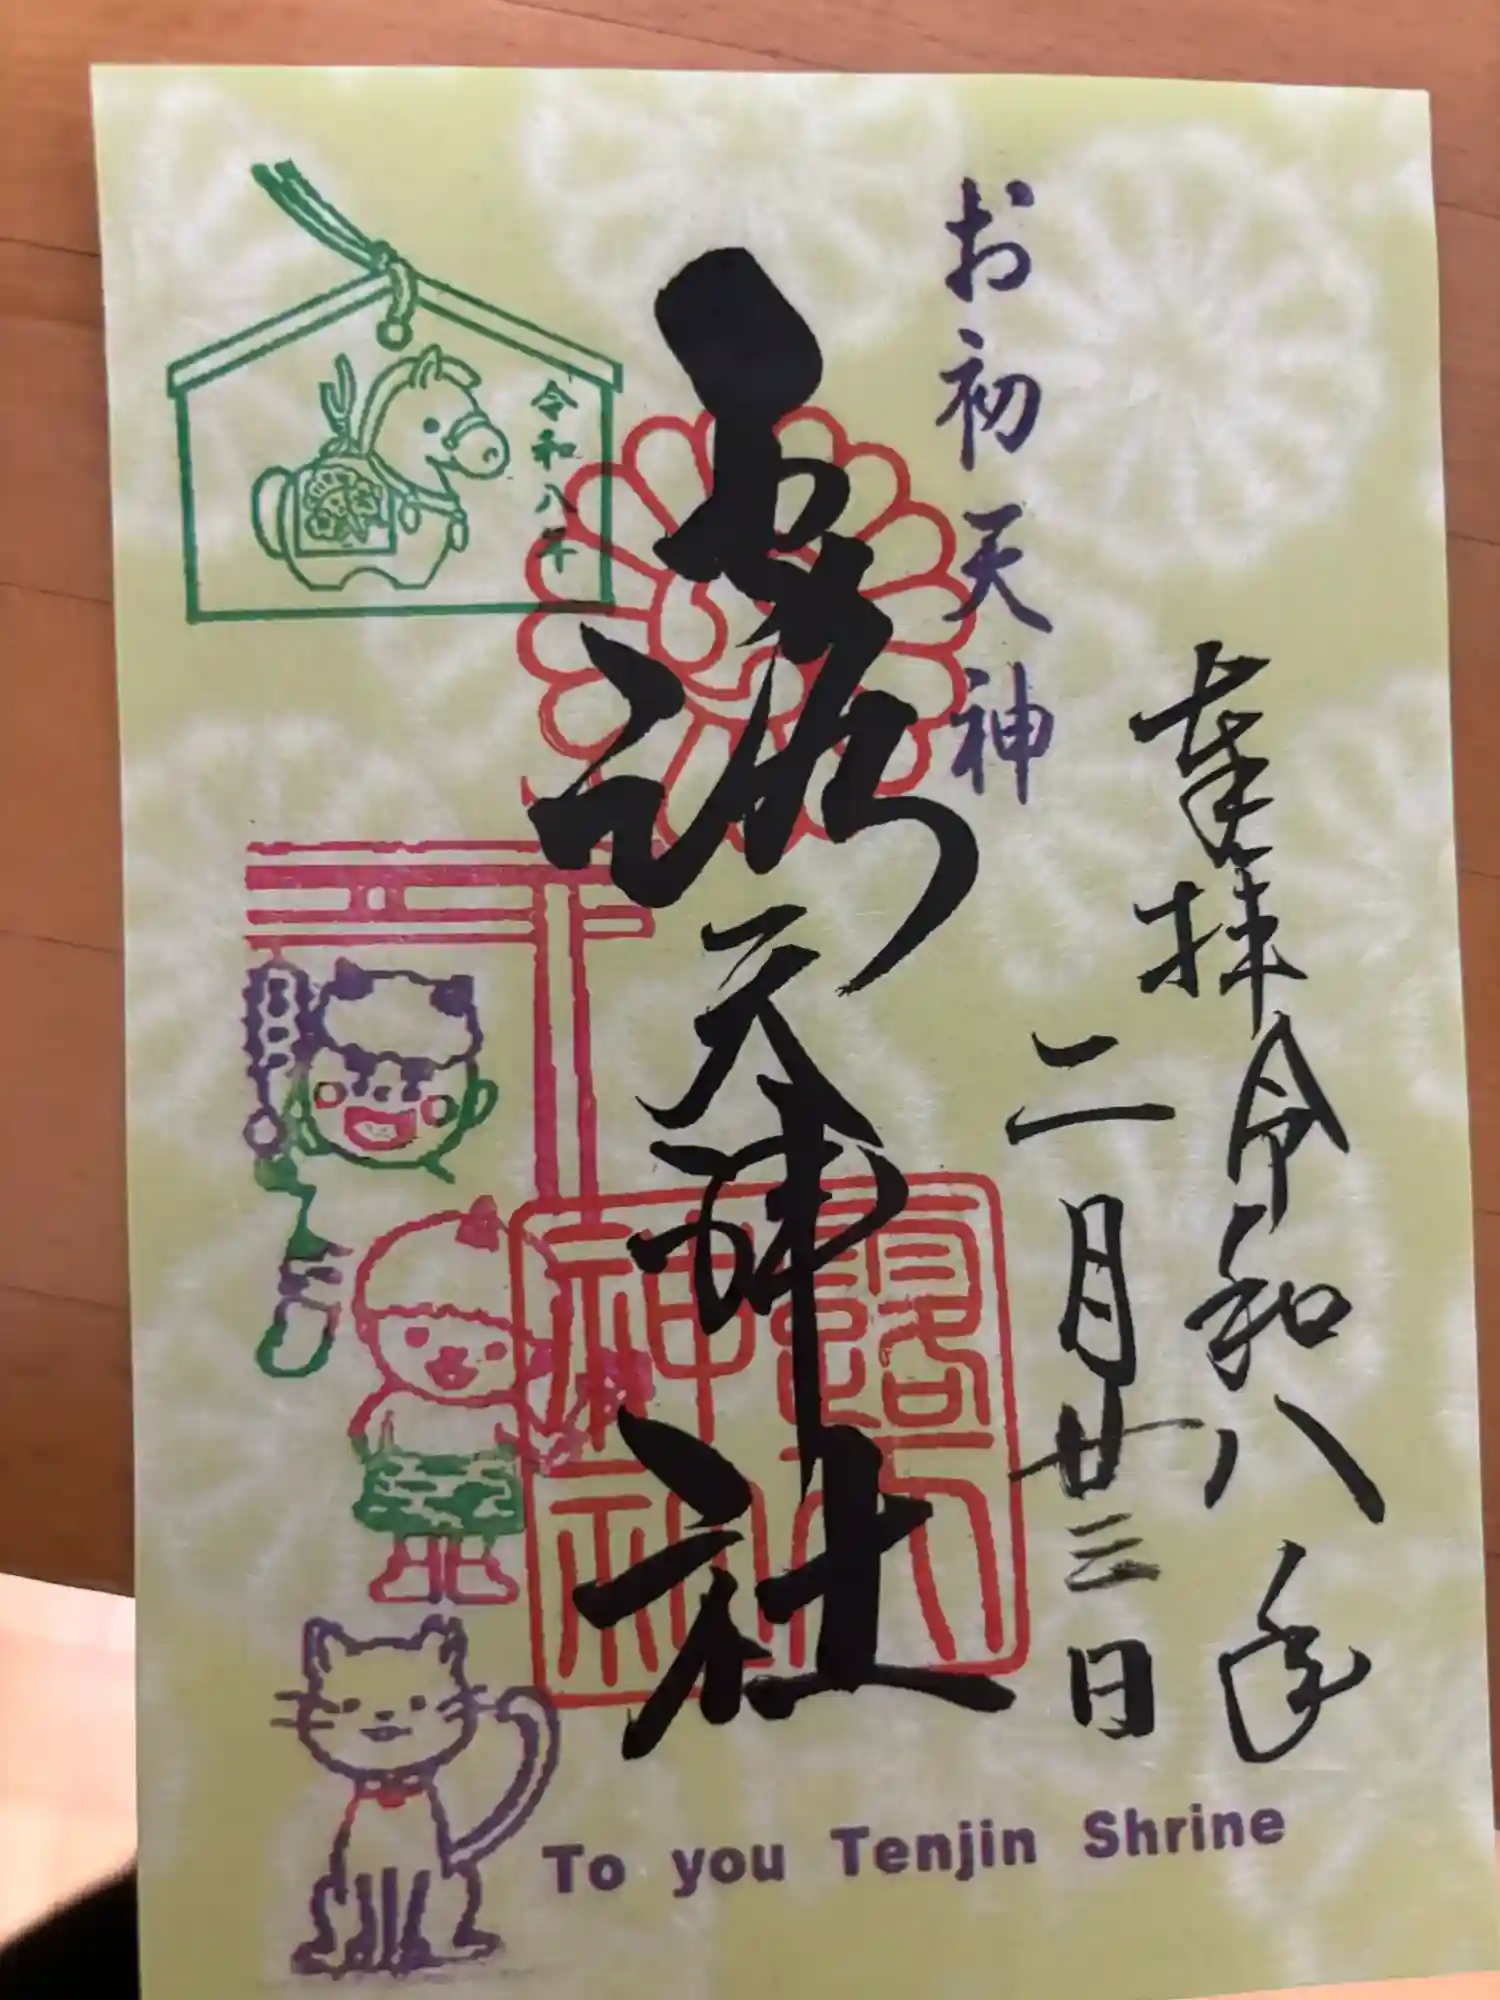 奉拝 令和八年
二月廿三日
お初天神
露天神社
令和八年
露天
神社
To you Tenjin Shrine